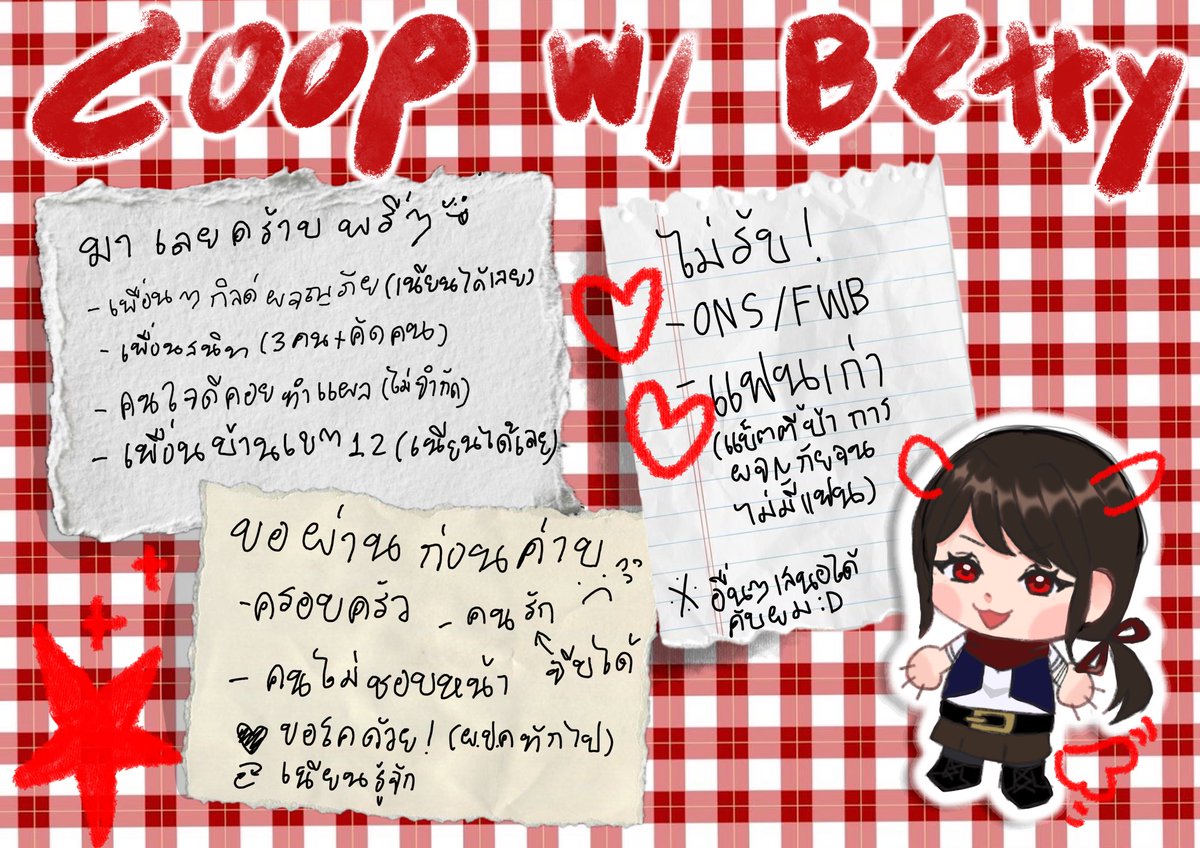 COOP w/ Betty
มาเลยคร้าบพรี่ๆ
- เพื่อนๆ กิลด์ผจญภัย (เนียนได้เลย)
- เพื่อนสนิท (3 คน + คัดคน)
- คนใจดีคอยทำแผล (ไม่จำกัด)
- เพื่อนบ้านเขต 12 (เนียนได้เลย)
ไม่รับ!
- ONS/FWB
- แฟนเก่า
(แบ็ตตี้ป้า การ
ผจญภัยจน
ไม่มีแฟน)
อื่นๆ เสนอได้
คับผม :D
ขอผ่านก่อนค่าบ
- ครอบครัว - คนรัก
จีบได้
- คนไม่ชอบหน้า
ขอโคด้วย! (ผปค ทักไป)
เนียนรู้จัก